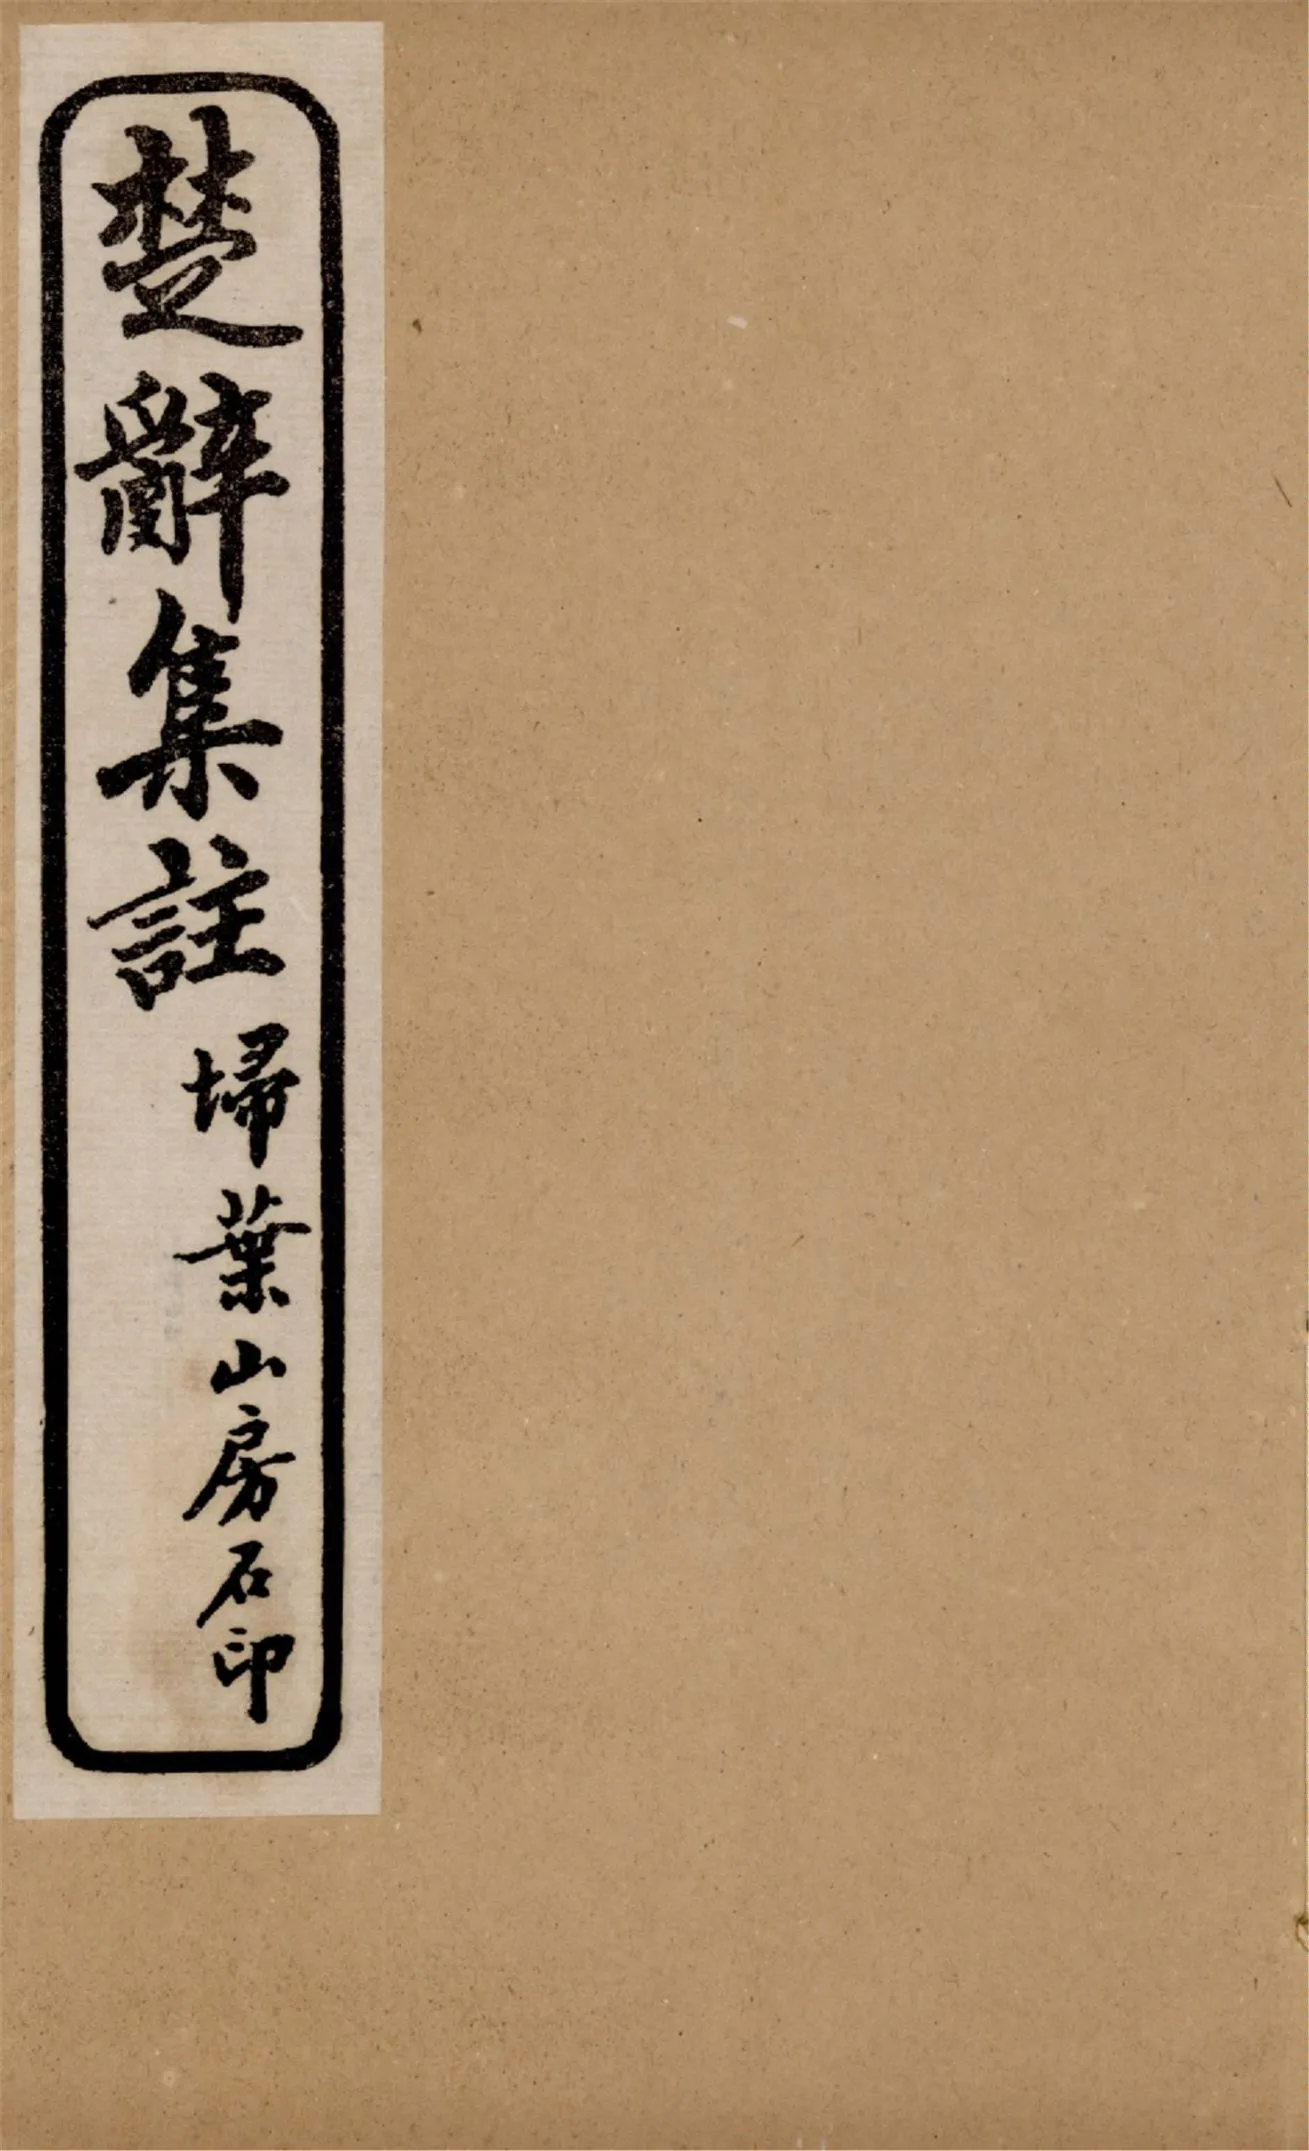 楚辭集註
埽葉山房石印